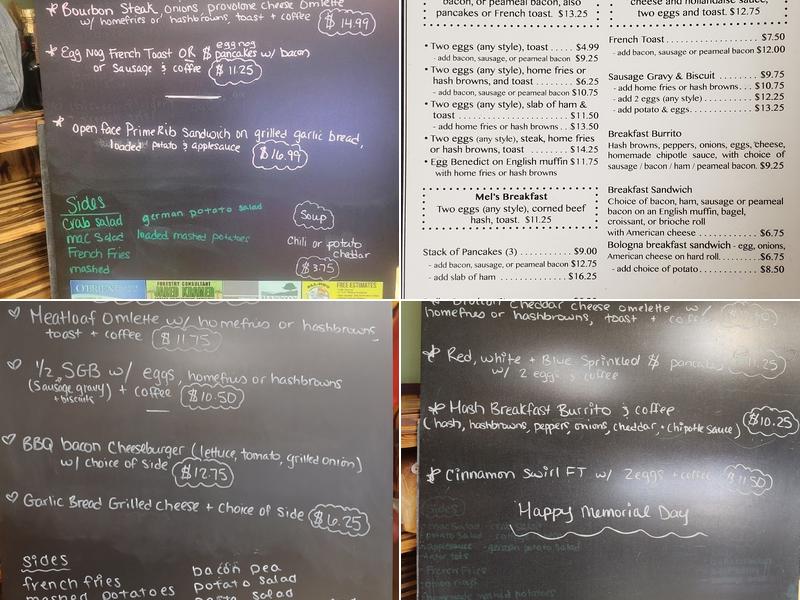 * Bourbon Steak, onions, provolone cheese omlette
w/ homefries or hashbrowns, toast + coffee $14.99
* Egg Nog French Toast OR $ egg nog pancakes w/ bacon
or Sausage & coffee $11.25
* open face Prime Rib Sandwich on grilled garlic bread,
loaded potato & applesauce $16.99
Sides
crab salad
mac Salad
French Fries
mashed
german potato salad
loaded mashed potatoes
Soup
Chili or potato
cheddar
$3.75
O'BRIEN
FORESTRY CONSULTANT
JARED KRAMER
FREE ESTIMATES
bacon, or peameal bacon, also
pancakes or French toast. $13.25
• Two eggs (any style), toast ..... $4.99
- add bacon, sausage, or peameal bacon $9.25
• Two eggs (any style), home fries or
hash browns, and toast ......... $6.25
- add bacon, sausage or peameal bacon $10.75
• Two eggs (any style), slab of ham &
toast ......................... $11.50
- add home fries or hash browns ... $13.50
• Two eggs (any style), steak, home fries
or hash browns, toast .......... $14.25
• Egg Benedict on English muffin $11.75
with home fries or hash browns
Mel's Breakfast
Two eggs (any style), corned beef
hash, toast. $11.25
Stack of Pancakes (3) ............ $9.00
- add bacon, sausage, or peameal bacon $12.75
- add slab of ham ............... $16.25
cheese and hollandaise sauce,
two eggs and toast. $12.75
French Toast ................... $7.50
- add bacon, sausage or peameal bacon $12.00
Sausage Gravy & Biscuit ......... $9.75
- add home fries or hash browns ... $10.75
- add 2 eggs (any style) .......... $12.25
- add potato & eggs .............. $13.25
Breakfast Burrito
Hash browns, peppers, onions, eggs, cheese,
homemade chipotle sauce, with choice of
sausage / bacon / ham / peameal bacon. $9.25
Breakfast Sandwich
Choice of bacon, ham, sausage or peameal
bacon on an English muffin, bagel,
croissant, or brioche roll
with American cheese .............. $6.75
Bologna breakfast sandwich - egg, onions,
American cheese on hard roll ....... $6.75
- add choice of potato ............. $8.50
♡ Meatloaf Omlette w/ homefries or hashbrowns,
toast + coffee $11.75
♡ 1/2 SGB w/ eggs, homefries or hashbrowns
(Sausage gravy + biscuits) + coffee $10.50
♡ BBQ bacon Cheeseburger (lettuce, tomato, grilled onion)
w/ choice of Side $12.75
♡ Garlic Bread Grilled Cheese + Choice of Side $6.25
sides
french fries
mashed potatoes
bacon pea
potato salad
pasta salad
Cheddar cheese omelette w/
homefries or hashbrowns, toast + coffee
* Red, white + Blue Sprinkled $ pancakes $11.25
w/ 2 eggs & coffee
* Hash Breakfast Burrito & coffee $10.25
(hash, hashbrowns, peppers, onions, cheddar, + chipotle sauce)
* Cinnamon Swirl FT w/ 2 eggs + coffee $11.50
Happy Memorial Day
Sides
mac Salad
potato salad
applesauce
- german potato salad
French Fries
onion rings
homemade mashed potatoes